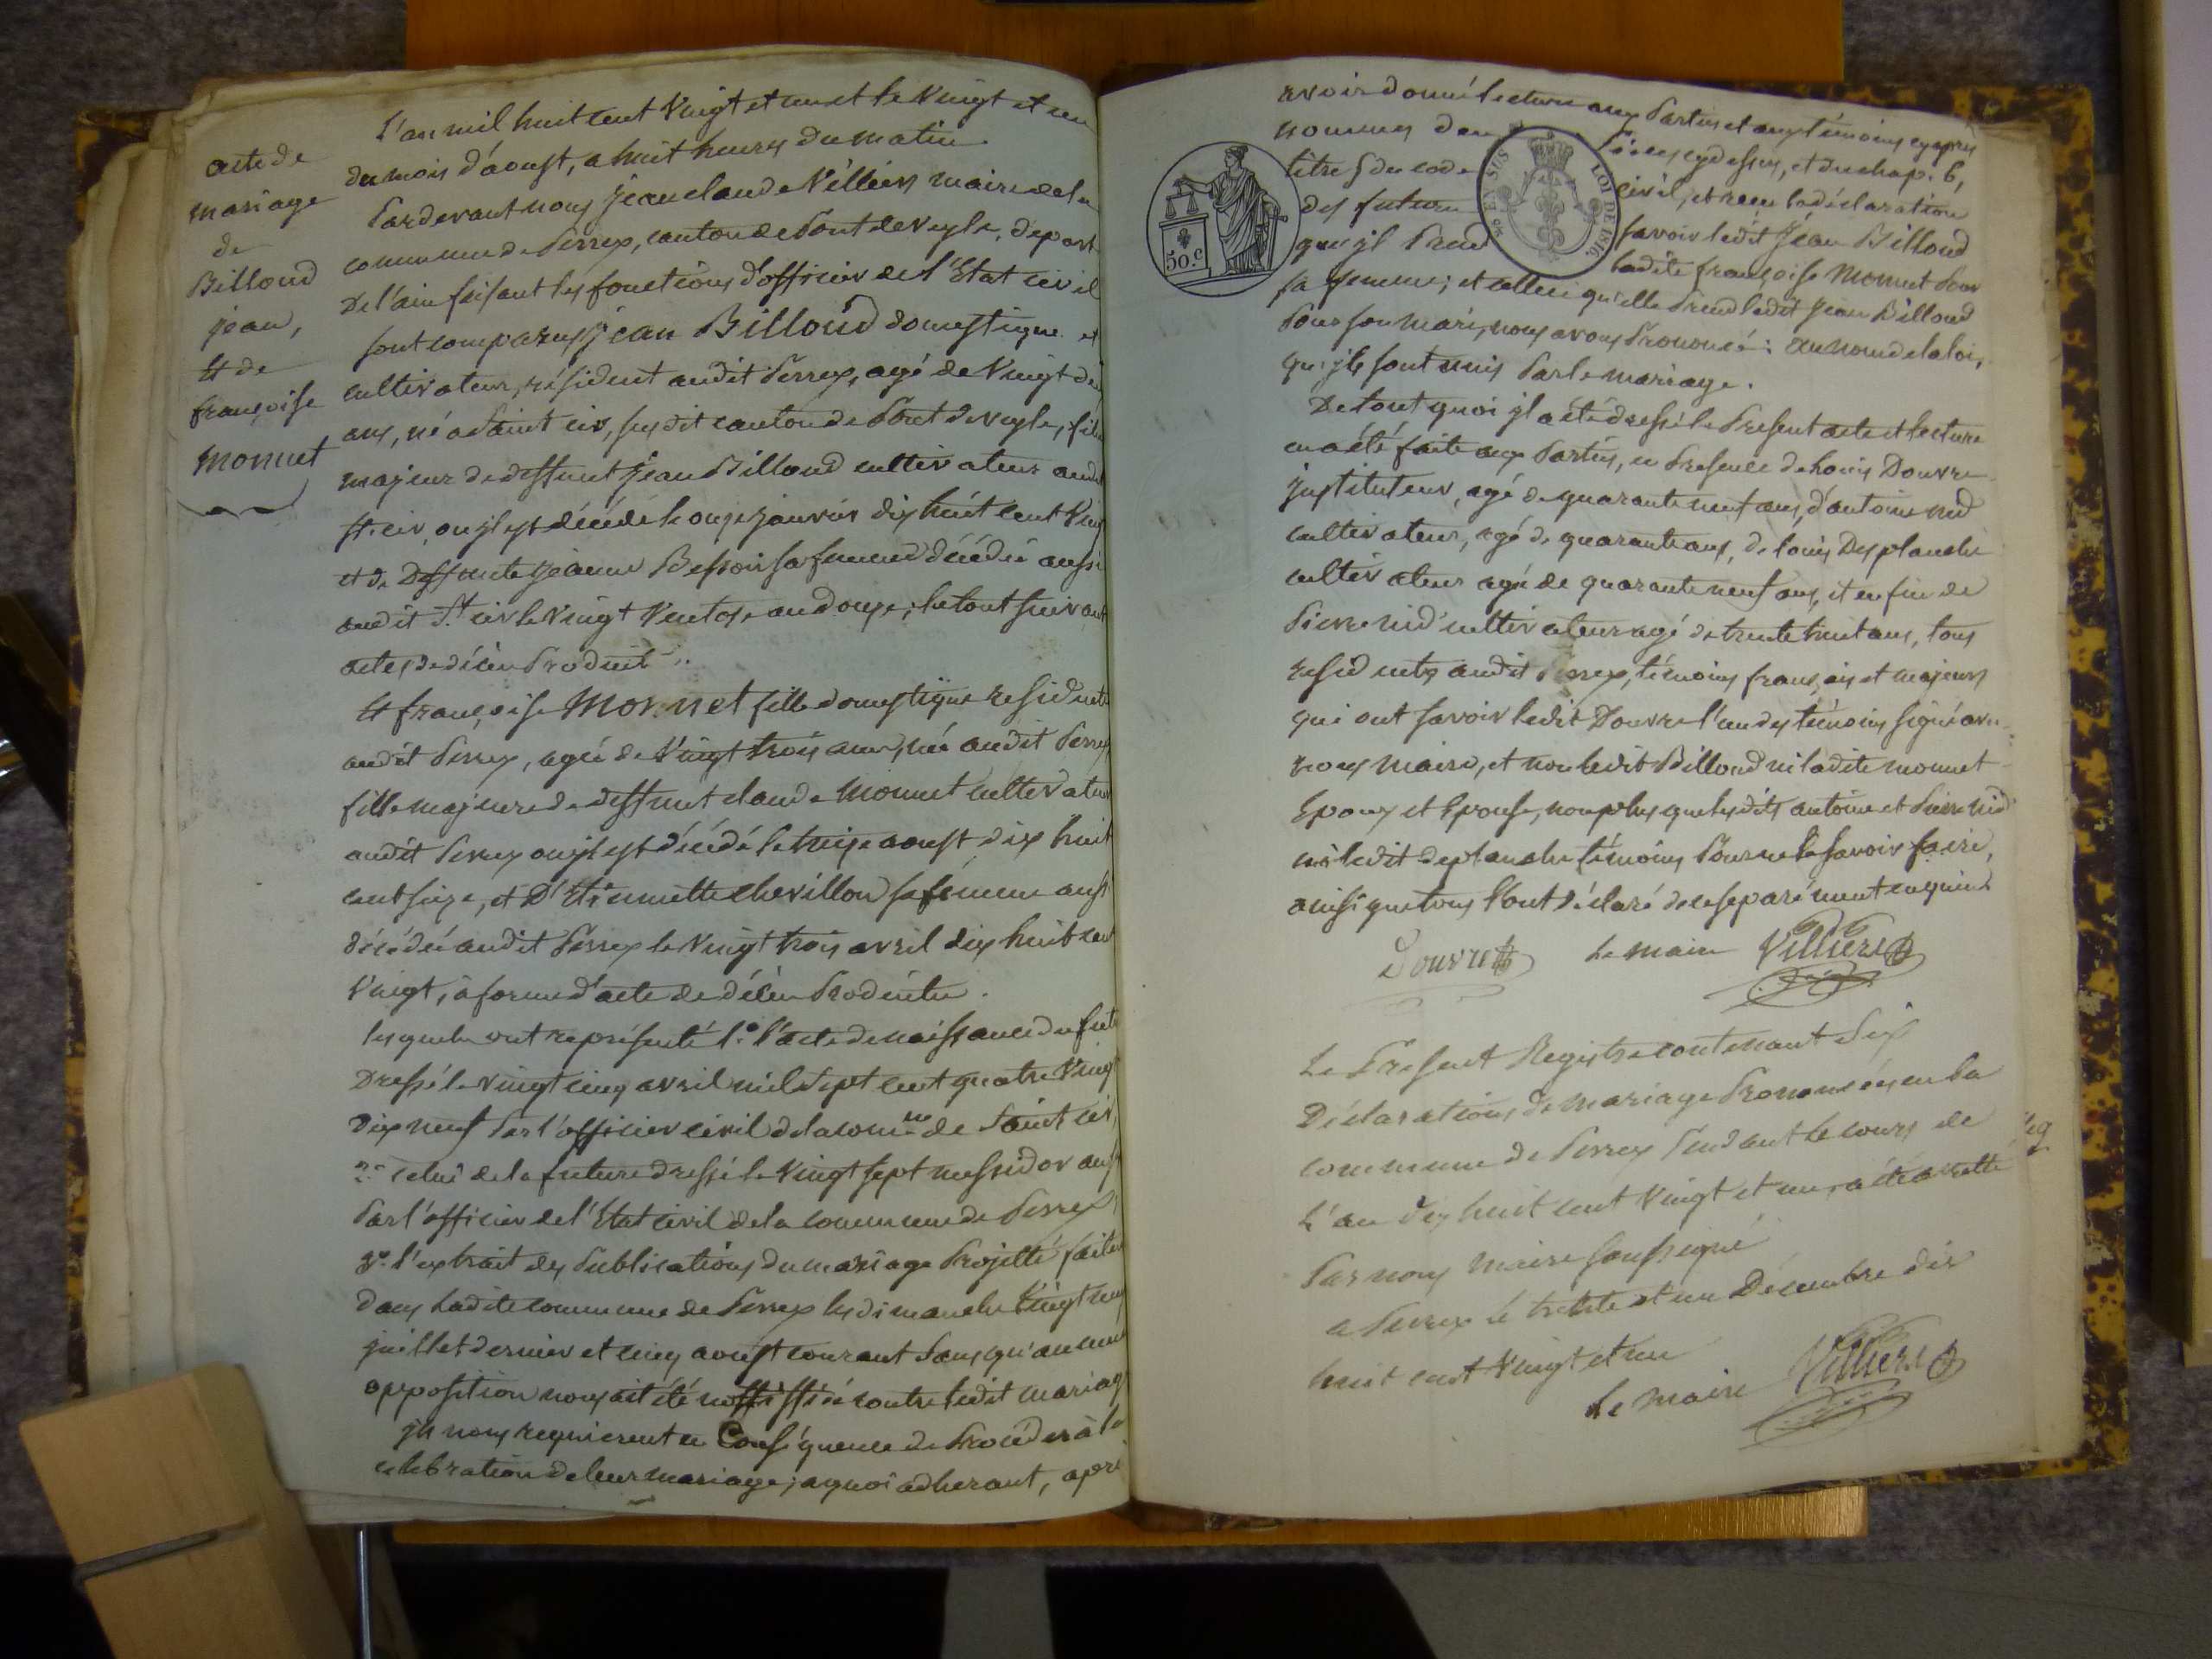 acte de
mariage
de
Billoud
jean,
Et de
françoise
monnet
L'an mil huit cent vingt et un et le vingt et un
du mois d'aoust, a huit heures du matin.
Pardevant nous jean claude Villiers maire de la
commune de Perrex, canton de Pont de veyle, depart.
De l'ain faisant les fonctions d'officier de l'Etat civil
sont comparus jean Billoud domestique et
cultivateur, résident audit Perrex, agé de vingt deux
ans, né a Saint cir, susdit canton de Pont de veyle, fils
majeur de deffunt jean Billoud cultivateur audit
St. cir, ou jl est décédé le onze janvier dix huit cent vingt
et de Deffunte jeanne Besson sa femme décédée aussi
audit St. cir le vingt ventose an douze; le tout suivant
actes de décès Produit.
Et françoise Monnet fille domestique residente
audit Perrex, agée de vingt trois ans, née audit Perrex
fille majeure de deffunt claude Monnet cultivateur
audit Perrex ou jl est décédé le treize aoust dix huit
cent seize, et D'Etiennette chevillon sa femme aussi
décédée audit Perrex le vingt trois avril dix huit cent
vingt, a forme d'acte de décès Produitte.
lesquels ont représenté 1.o l'acte de naissance du futur
Dressé le vingt cinq avril mil sept cent quatre vingt
Dix neuf Par l'officier civil de la comne de Saint cir
2.o celui de la future dressé le vingt sept messidor an six
Par l'officier de l'Etat civil de la commune de Perrex,
3.o l'extrait des Publications du mariage Projetté faites
dans Ladite commune de Perrex les dimanche vingt neuf
juillet dernier et cinq aoust courant sans qu'aucune
opposition nous ait été noffiffiée contre ledit mariage
jls nous requierent en Conséquence de Procéder à la
celebration de leur mariage; a quoi adherant, après
avoir donné lecture aux Parties et aux témoins cy après
nommes des Pièces cy dessus, et du chap. 6,
titre 5 du code civil, et recu la déclaration
des futurs savoir ledit jean Billoud
que jl Prend ladite françoise Monnet Pour
sa femme; et celle ci qu'elle Prend ledit jean Billoud
Pour son mari, nous avons Prononcé: au nom de la loi,
qu'jls sont unis Par le mariage.
De tout quoi jl a été dressé le Present acte et lecture
en a été faite aux Parties, en Presence de Louis Douvre
jnstituteur, agé de quarante neuf ans, d'antoine nid
cultivateur, agé de quarante ans, de louis Desplanche
cultivateur agé de quarante neuf ans, et enfin de
Pierre nid cultivateur agé de trente huit ans, tous
residents audit Perrex, témoins français et majeurs
qui ont savoir ledit Douvre l'un des témoins signé avec
nous maire, et non ledit Billoud ni ladite monnet
Epoux et Epouse, non plus que lesdits antoine et Pierre nid
ni ledit desplanche témoins Pour ne le savoir faire,
ainsi que tous l'ont déclaré de ce separément enquis
Douvre Le maire Villiers
50.c
EN SUS
LOI DE 1816
Le Present Registre contenant six
Déclarations de mariage Prononcées en la
commune de Perrex Pendant le cours de
L'an dix huit cent vingt et un, a été arretté
Par nous maire soussigné
a Perrex le trente et un Décembre dix
huit cent vingt et un
Le maire Villiers